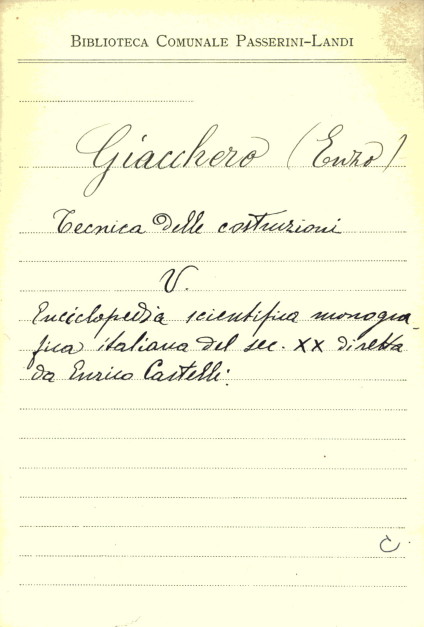 BIBLIOTECA COMUNALE PASSERINI-LANDI
Giacchero (Enzo)
Tecnica delle costruzioni
V.
Enciclopedia scientifica monogra-
fica italiana del sec. XX diretta
da Enrico Castelli.
C